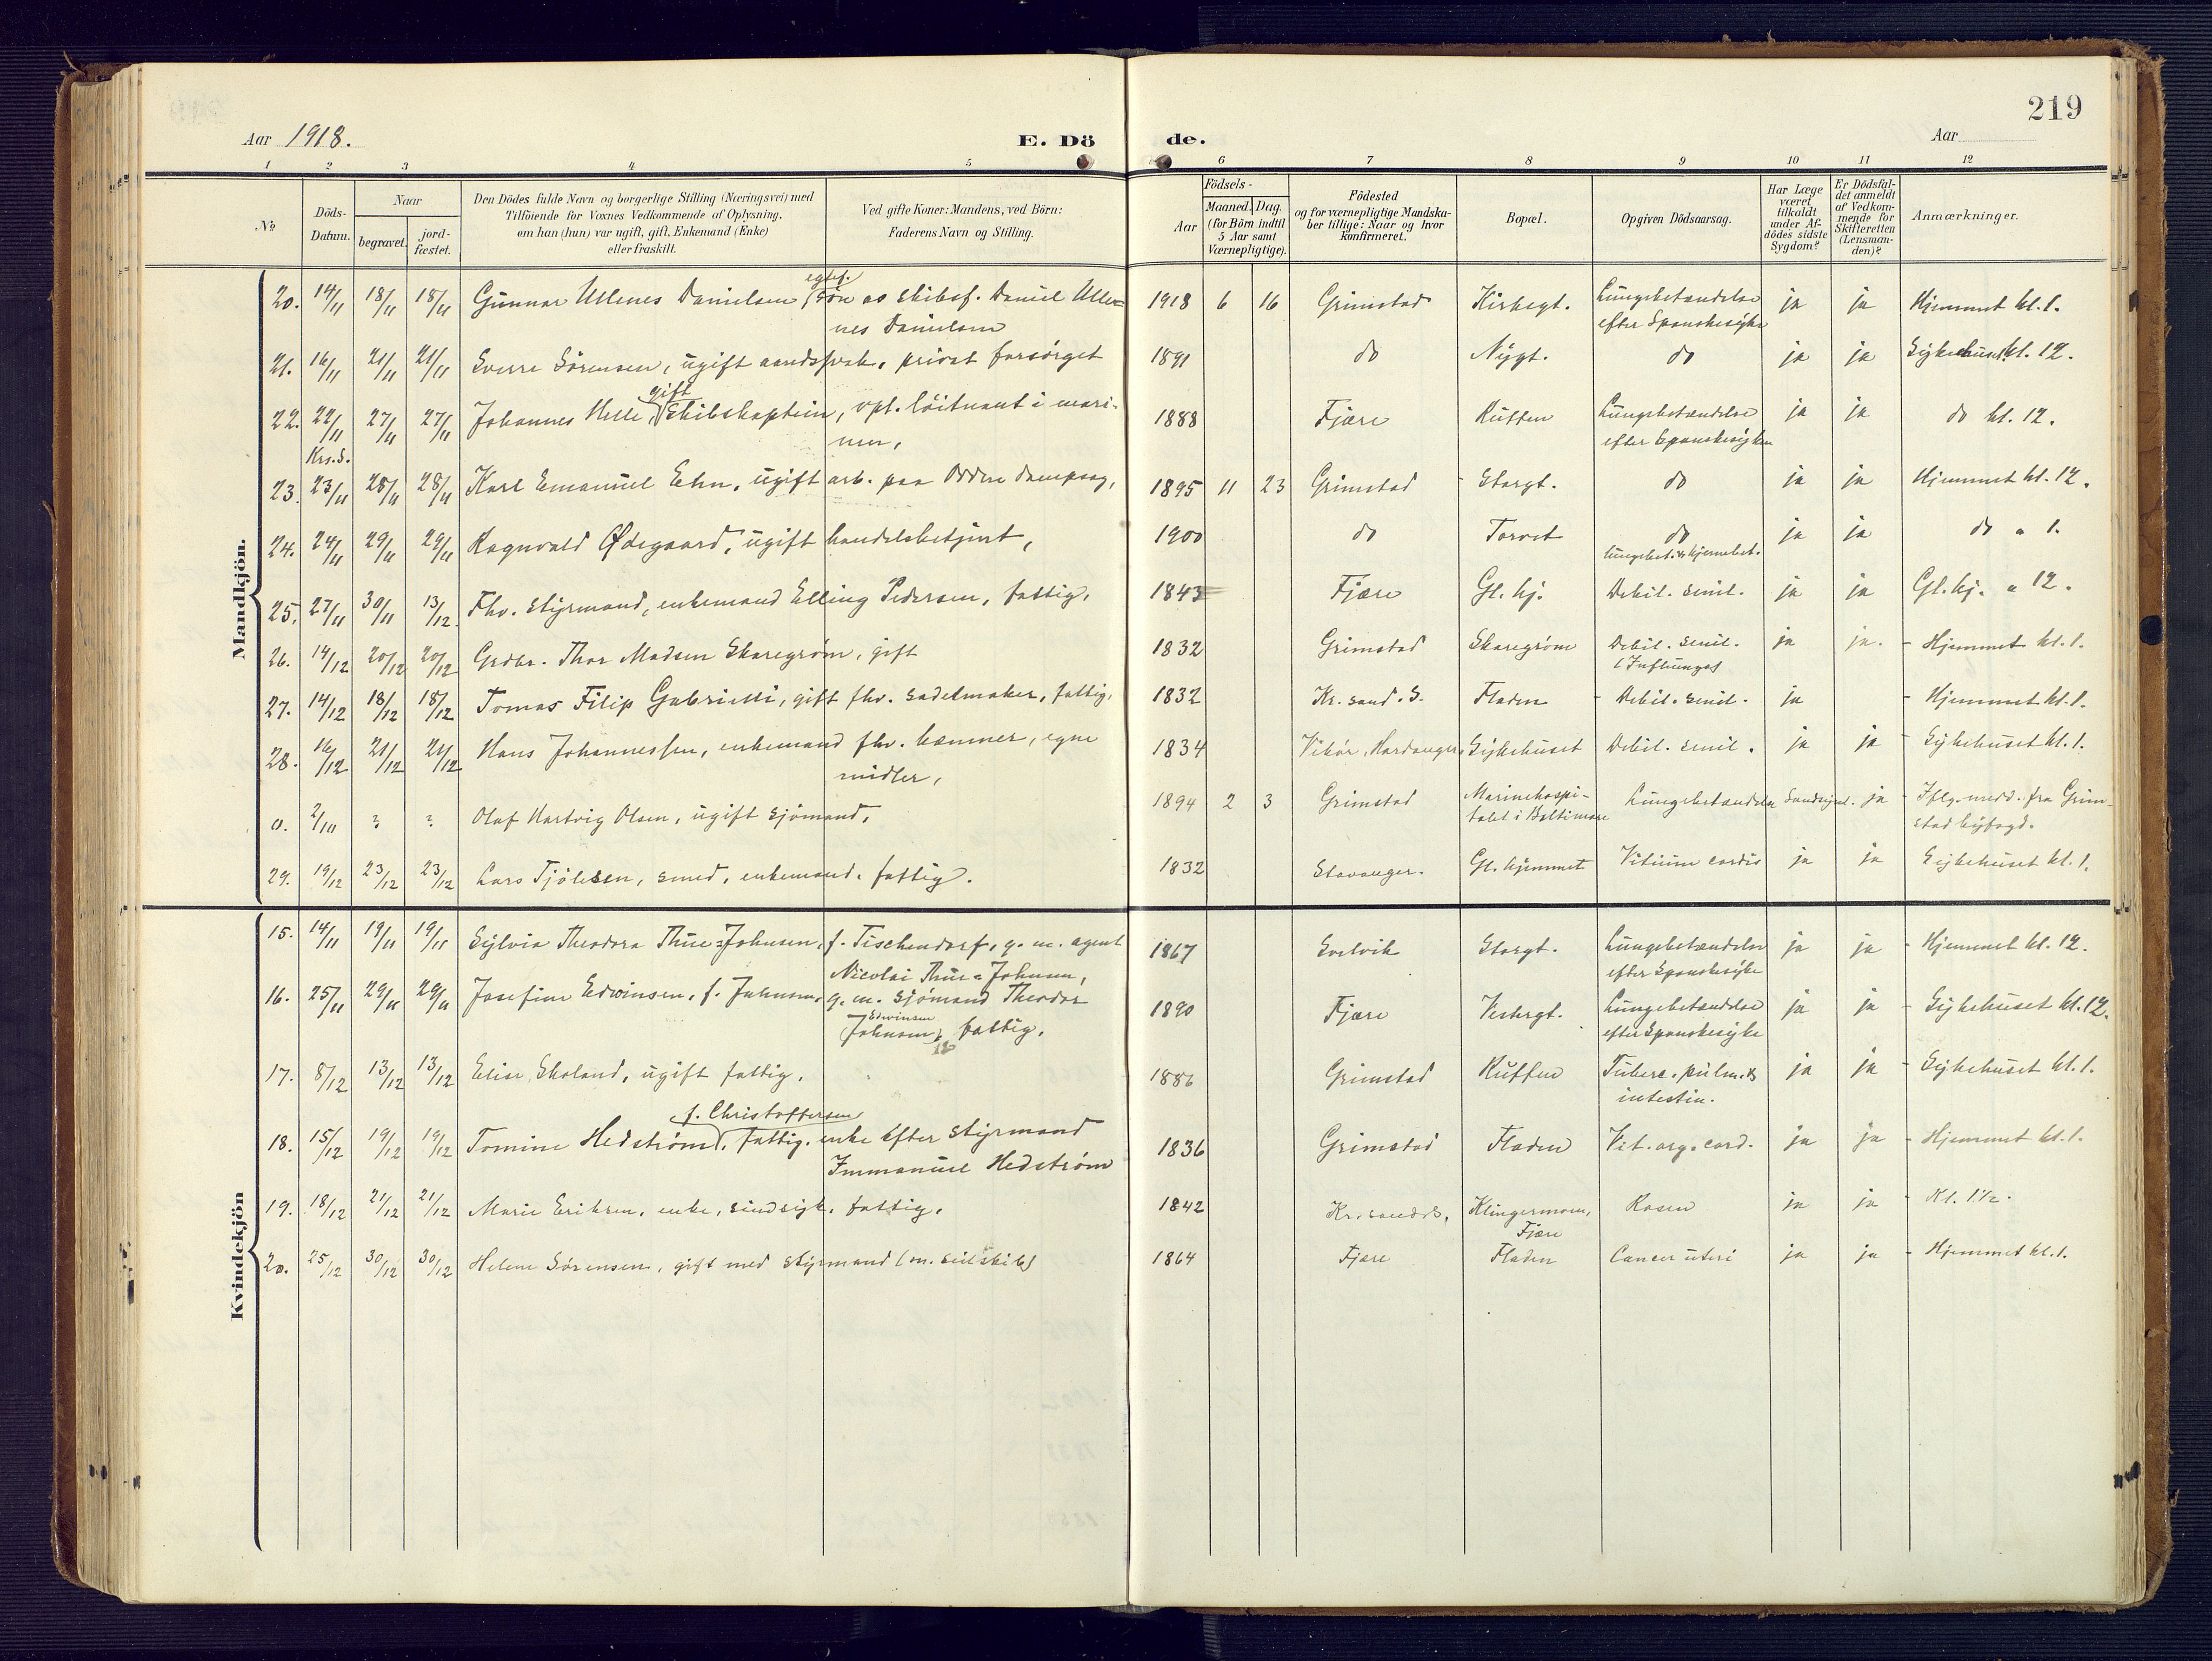 219
Aar 1918.
E. Dö de.
Aar
1 2 3 4 5 6 7 8 9 10 11 12
№
Döds-Datum.
Naar
begravet.
jord-fæstet.
Den Dödes fulde Navn og borgerlige Stilling (Næringsvei) med
Tilföiende for Voxnes Vedkommende af Oplysning,
om han (hun) var ugift, gift, Enkemand (Enke)
eller fraskilt.
Ved gifte Koner: Mandens, ved Börn:
Faderens Navn og Stilling.
Födsels-
Aar
Maaned.
Dag.
(for Börn indtil
5 Aar samt
Værnepligtige).
Födested
og for værnepligtige Mandska-
ber tillige: Naar og hvor
Konfirmeret.
Bopæl.
Opgiven Dödsaarsag.
Har Læge
været
tilkaldt
under Af-
dödes sidste
Sygdom?
Er Dödsfal-
det anmeldt
af Vedkom-
mende for
Skifteretten
(Lensman-
den)?
Anmærkninger.
Mandkjön.
20. 14/11 18/11 18/11 Gunnar Ullenes Danielsen egtef. søn av skibsf. Daniel Ulle-
nes Danielsen 1918 6 16 Grimstad Kirkegt. Lungebetændelse
efter Spanskesyke ja ja Hjemmet kl. 1.
21. 16/11 21/11 21/11 Sverre Sörensen, ugift aandssvak, privat forsörget 1891 do Nygt. do ja ja Sykehuset kl. 12.
22. 22/11 Krs.S. 27/11 27/11 Johannes Helle, gift Skibskaptein, vpl. löitnant i mari-
nen, 1888 Fjære Ruffen Lungebetændelse
efter Spanskesyken ja ja do kl. 12.
23. 23/11 28/11 28/11 Karl Emanuel Ehn, ugift arb. paa Odden dampsag, 1895 11 23 Grimstad Storgt. do ja ja Hjemmet kl. 12.
24. 24/11 29/11 29/11 Ragnvald Ødegaard, ugift handelsbetjent, 1900 do Torvet do
lungebet. & hjernebet. ja ja do " 1.
25. 27/11 30/11 13/12. Fhv. styrmand, enkemand Elling Pedersen, fattig, 1843 Fjære Gl. hj. Debil. senil. ja ja Gl. hj. " 12.
26. 14/12 20/12 20/12 Grdbr. Thor Madsen Skaregrøm, gift 1832 Grimstad Skaregrøm Debil. senil.
(Influenza) ja ja. - Hjemmet kl. 1.
27. 14/12 18/12 18/12 Tomas Filip Gabrielli, gift fhv. sadelmaker, fattig, 1832 Kr.sand. S. Fladen - Debil. senil. ja - Hjemmet kl. 1.
28. 16/12 21/12 21/12 Hans Johannessen, enkemand fhv. kæmner, egne
midler, 1834 Vikör, Hardanger, Sykehuset Debil. senil. ja ja - Sykehuset kl. 1.
0. 2/10 ? ? Olaf Hartvig Olsen, ugift sjömand, 1894 2 3 Grimstad Marinehospi-
talet i Baltimore Lungebetændelse ja - Iflg. medd. fra Grim-
stad byfogd.
29. 19/12 23/12 23/12 Lars Tjölesen, smed, enkemand. fattig. 1832 Stavanger. Gl. hjemmet Vitium cordis ja ja - Sykehuset kl. 1.
Kvindekjön
15. 14/11 19/11 19/11 Sylvia Theodora Thue=Johnsen, f. Tischendorf, g. m. agent
Nicolai Thue=Johnsen, 1867 Svelvik Storgt. Lungebetændelse
efter Spanskesyke ja ja - Hjemmet kl. 12.
16. 25/11 29/11 29/11 Josefine Edwinsen, f. Johnsen, g. m. sjömand Theodor
Edwinsen
(Johnsen), fattig. 1890 Fjære Vestregt. Lungebetændelse
efter Spanskesyke ja ja - Sykehuset kl. 12.
17. 8/12 13/12 13/12 Elise Skoland, ugift fattig. 1886 Grimstad Ruffen Tuberc. pulm. &
intestin. ja ja - Sykehuset kl. 1.
18. 15/12 19/12 19/12 Tomine Hedström, f. Christoffersen fattig. enke efter styrmand
Immanuel Hedström 1836 Grimstad Fladen Vit. org. cord. ja ja - Hjemmet kl. 1.
19. 18/12 21/12 21/12 Marie Eriksen, enke, sindssyk, fattig. 1842 Kr.sand S. Klingermoen,
Fjære Rosen ja ja - Kl. 1½.
20. 25/12 30/12 30/12 Helene Sørensen, gift med styrmand (m. seilskib) 1864 Fjære Fladen Cancer uteri ja ja - Hjemmet kl. 1.